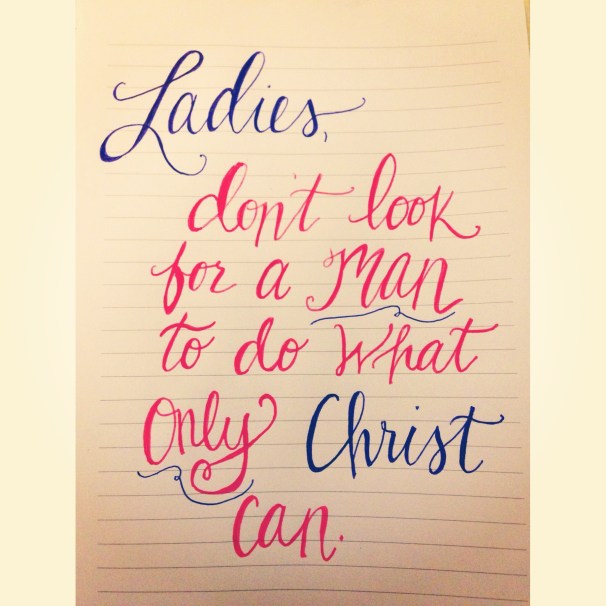 Ladies,
don't look
for a Man
to do What
Only Christ
can.